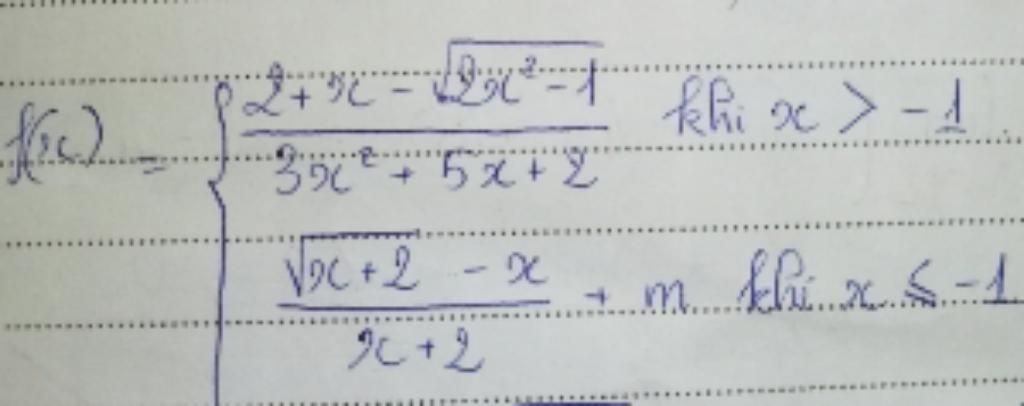 f(x) = { (2 + x - √(2x² - 1)) / (3x² + 5x + 2) khi x > -1
(√(x + 2) - x) / (x + 2) + m khi x ≤ -1